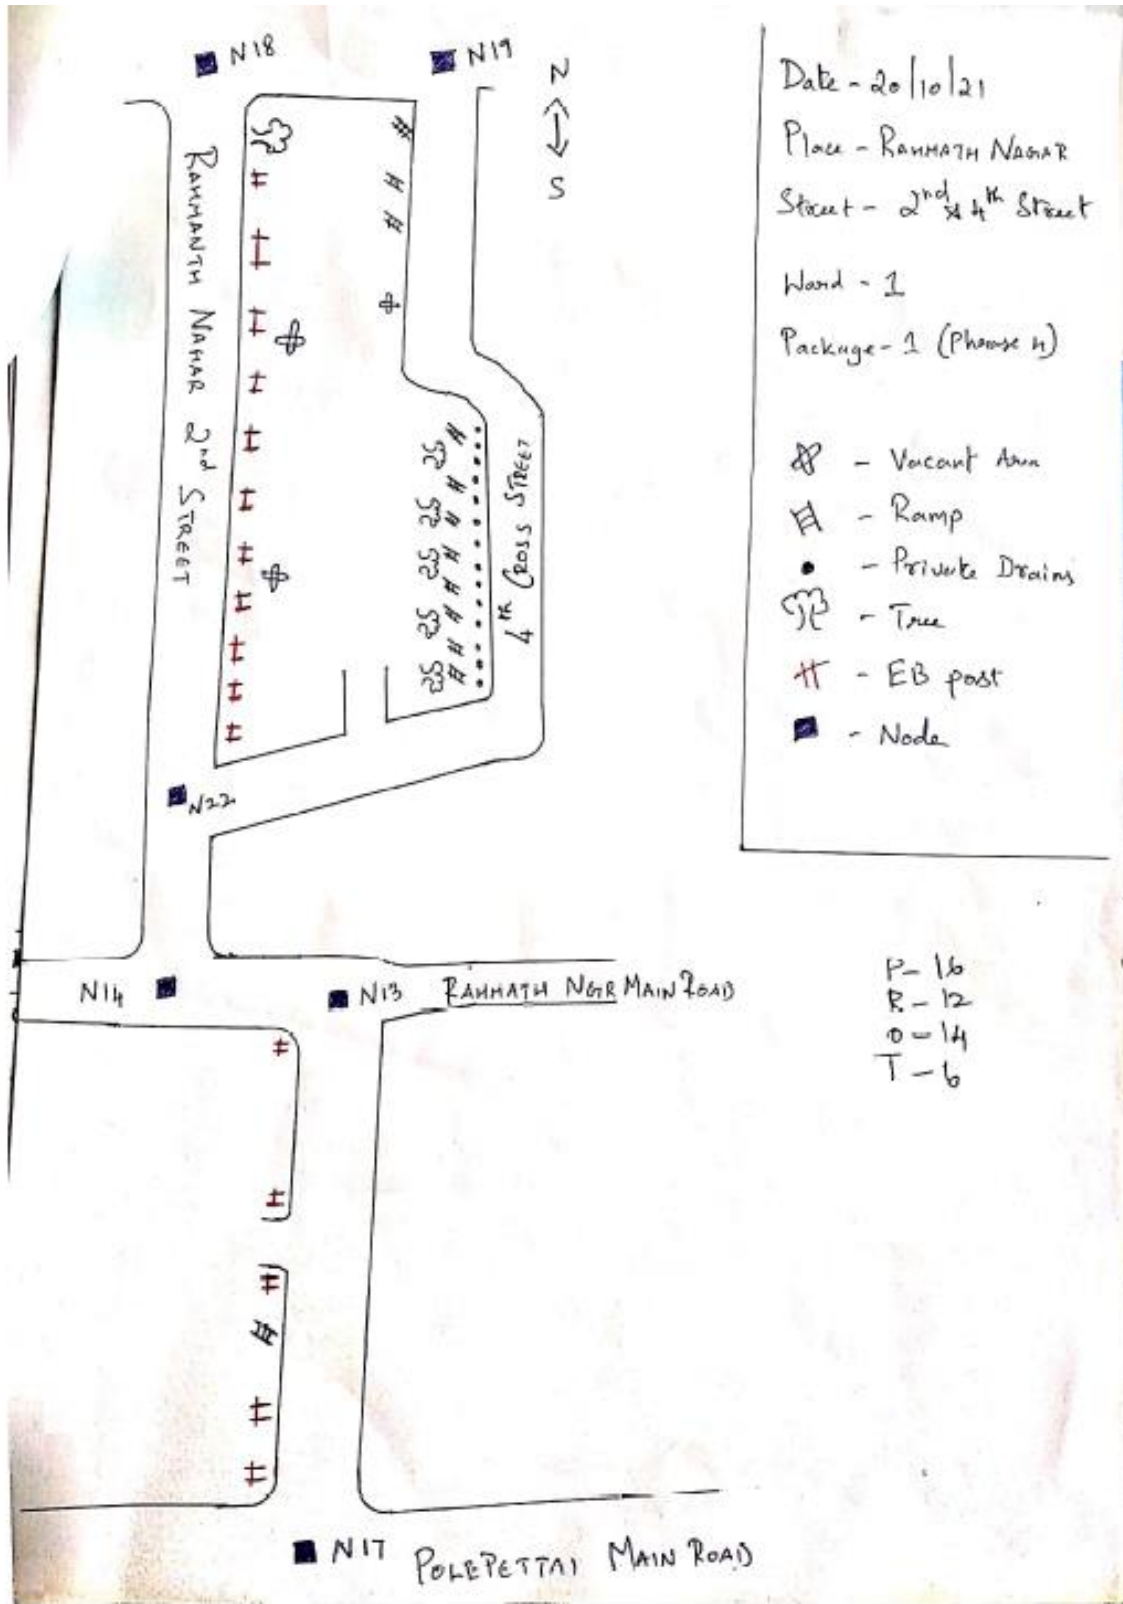 N18
N19
N
S
RAHMANTH NAHAR 2nd STREET
4th CROSS STREET
N22
N14
N13
RAHMATH NGR MAIN ROAD
N17
POLEPETTAI MAIN ROAD
Date - 20/10/21
Place - RAHMATH NAGAR
Street - 2nd & 4th Street
Ward - 1
Package - 1 (Phrase
- Vacant Area
- Ramp
- Private Drains
- Tree
- EB post
- Node
P - 16
R - 12
0 - 14
T - 6